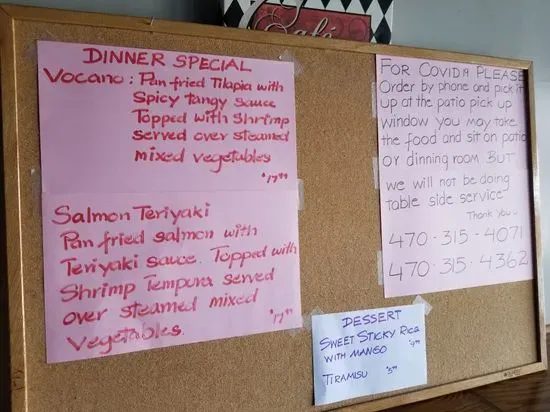 Café
DINNER SPECIAL
Vocano: Pan fried Tilapia with
Spicy tangy sauce
Topped with Shrimp
served over steamed
mixed vegetables
$17.99
Salmon Teriyaki
Pan fried salmon with
Teriyaki sauce. Topped with
Shrimp Tempura served
over steamed mixed
vegetables.
$17.99
FOR COVID19 PLEASE
Order by phone and pick it
up at the patio pick up
window you may take
the food and sit on patio
or dinning room BUT
we will not be doing
table side service
Thank you..
470-315-4071
470-315-4362
DESSERT
SWEET STICKY RICE
WITH MANGO
TIRAMISU